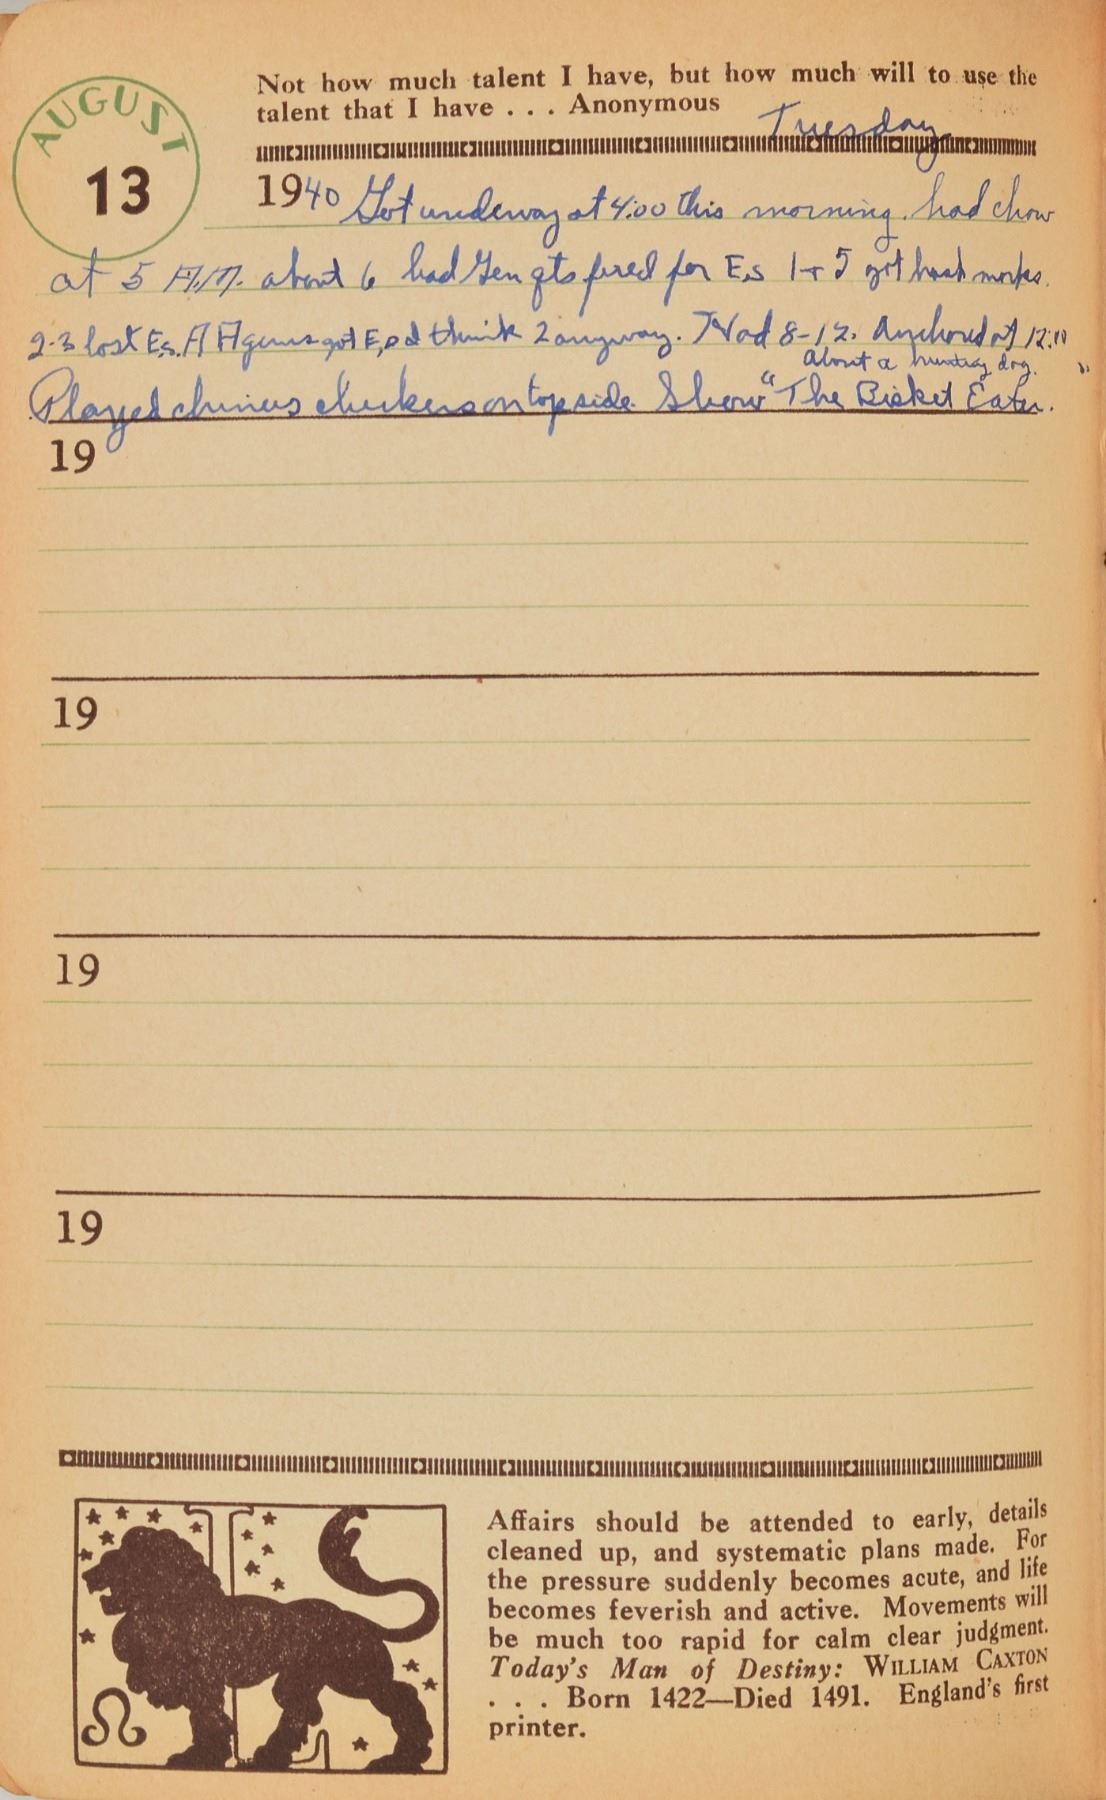 AUGUST
13
Not how much talent I have, but how much will to use the
talent that I have . . . Anonymous
Tuesday
1940 Got underway at 4:00 this morning. had chow
at 5 A.M. about 6 had Gen qts fired for E,s 1+5 got hash marks.
2-3 lost E,s. A A guns got E, I think 2 anyway. Had 8-12. Anchored at 12:10
About a hunting dog.
Played chinies chekers on topside. Show "The Bisket Eater."
19
19
19
19
Affairs should be attended to early, details
cleaned up, and systematic plans made. For
the pressure suddenly becomes acute, and life
becomes feverish and active. Movements will
be much too rapid for calm clear judgment.
Today's Man of Destiny: WILLIAM CAXTON
. . . Born 1422—Died 1491. England's first
printer.